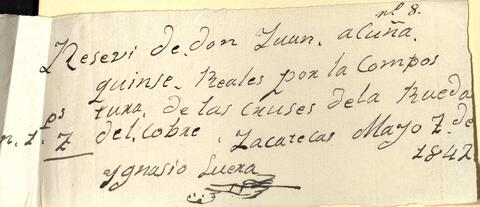 nl 8.
Resevi de don Juan acuña
quinse Reales por la Compos
tura de las cruses de la Rueda
n. 1. ps 7 del cobre. Zacatecas Mayo 7 de
1842
Ygnasio Luera